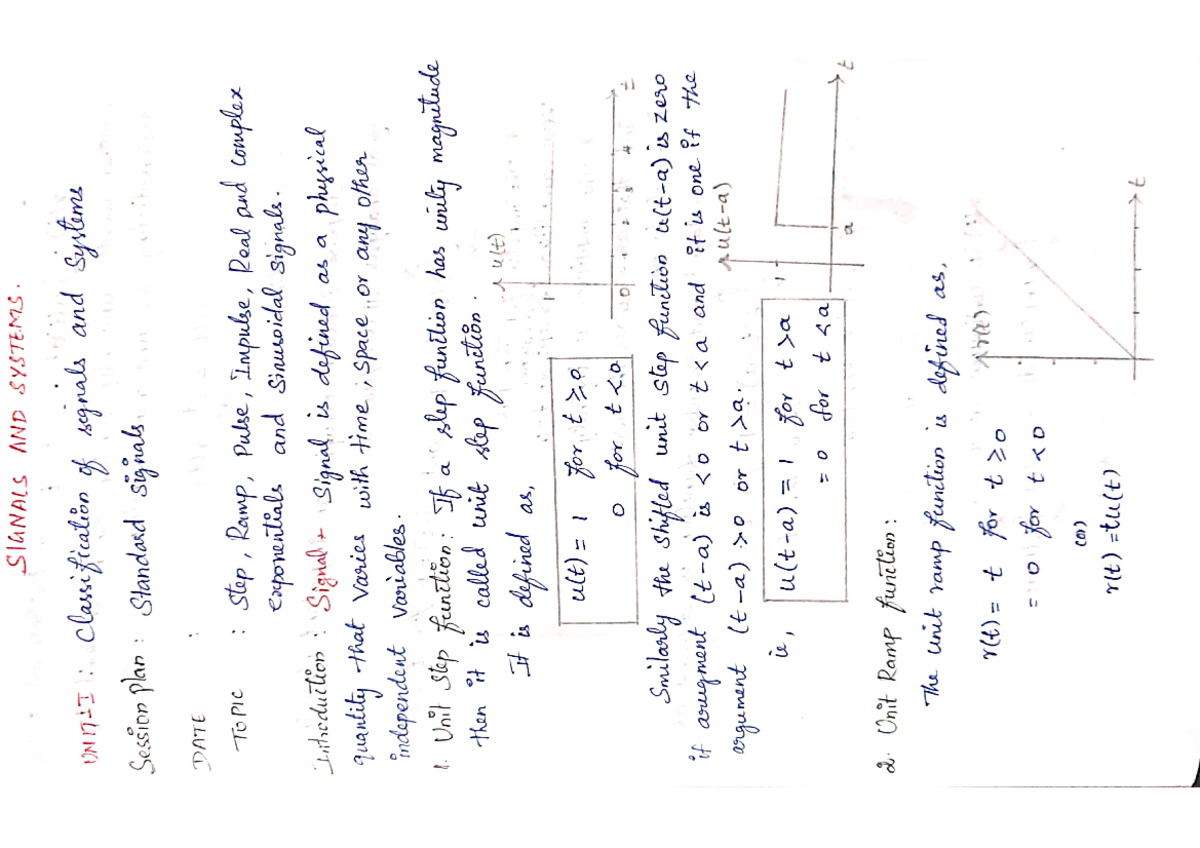 SIGNALS AND SYSTEMS.
UNIT-I : Classification of signals and Systems
Session plan : Standard Signals
DATE :
TOPIC : Step, Ramp, Pulse, Impulse, Real and complex
exponentials and Sinusoidal Signals.
Introduction : Signal :- Signal is defined as a physical
quantity that varies with time, space or any other
independent variables.
1. Unit Step function : If a step function has unity magnitude
then it is called unit step function.
It is defined as,
u(t) = 1 for t ≥ 0
0 for t < 0
u(t)
1
0 1 2 3 4 t
Smilarly the shifted unit step function u(t-a) is zero
if arugment (t-a) is < 0 or t < a and it is one if the
argument (t-a) > 0 or t > a.
ie, u(t-a) = 1 for t > a
= 0 for t < a
u(t-a)
1
a t
2. Unit Ramp function :
The unit ramp function is defined as,
r(t) = t for t ≥ 0
= 0 for t < 0
(or)
r(t) = tu(t)
r(t)
t